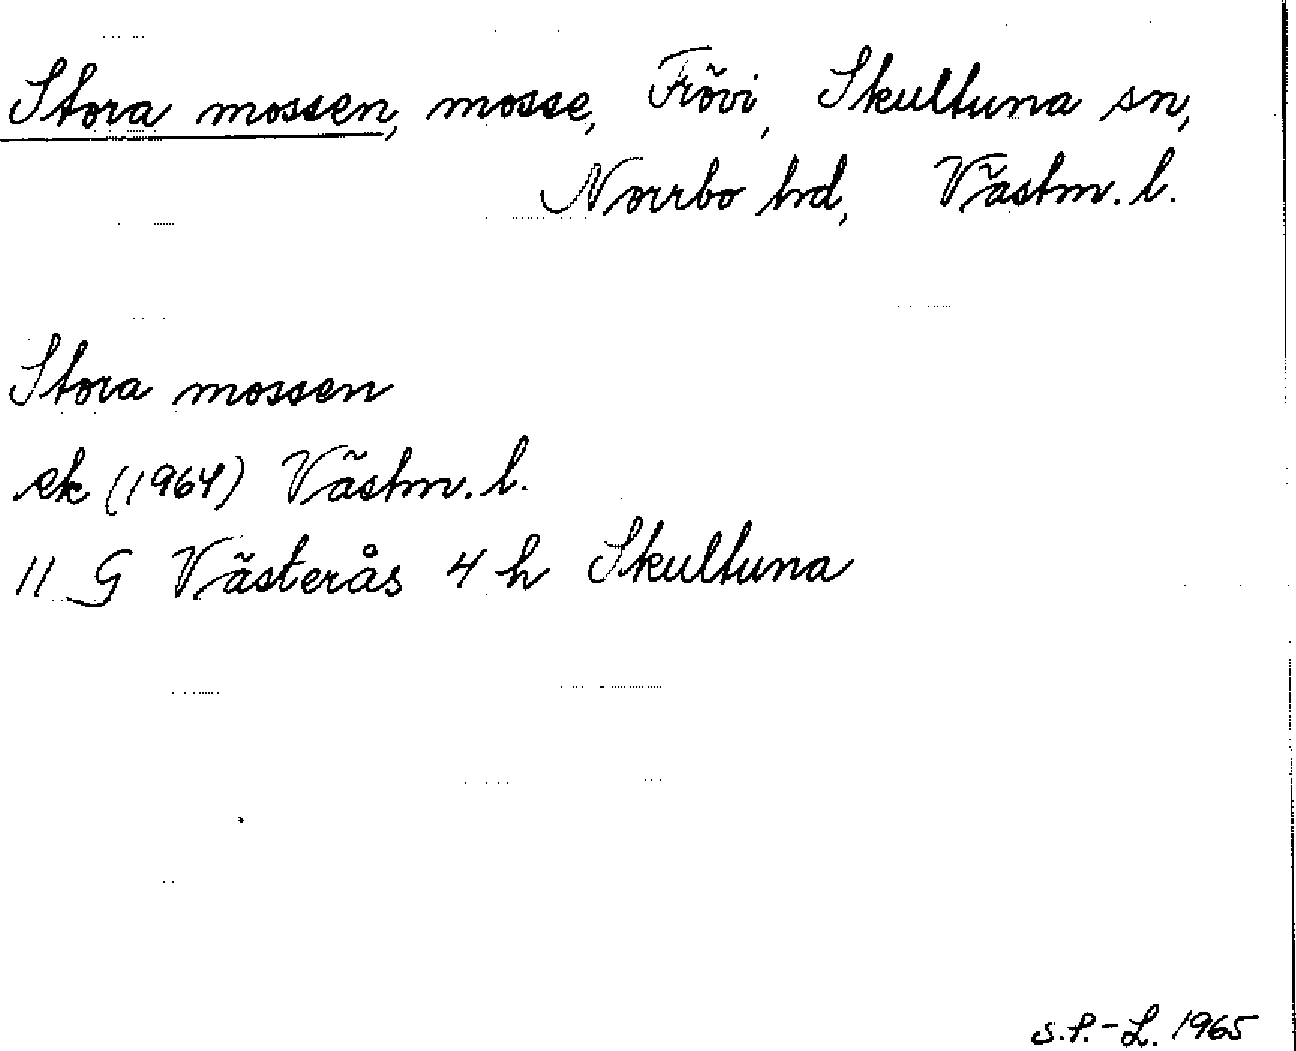 Stora mossen, mosse, Frövi, Skultuna sn,
Norrbo hd, Västm. l.
Stora mossen
ek (1964) Västm. l.
11 G Västerås 4 h Skultuna
S.P.-L. 1965